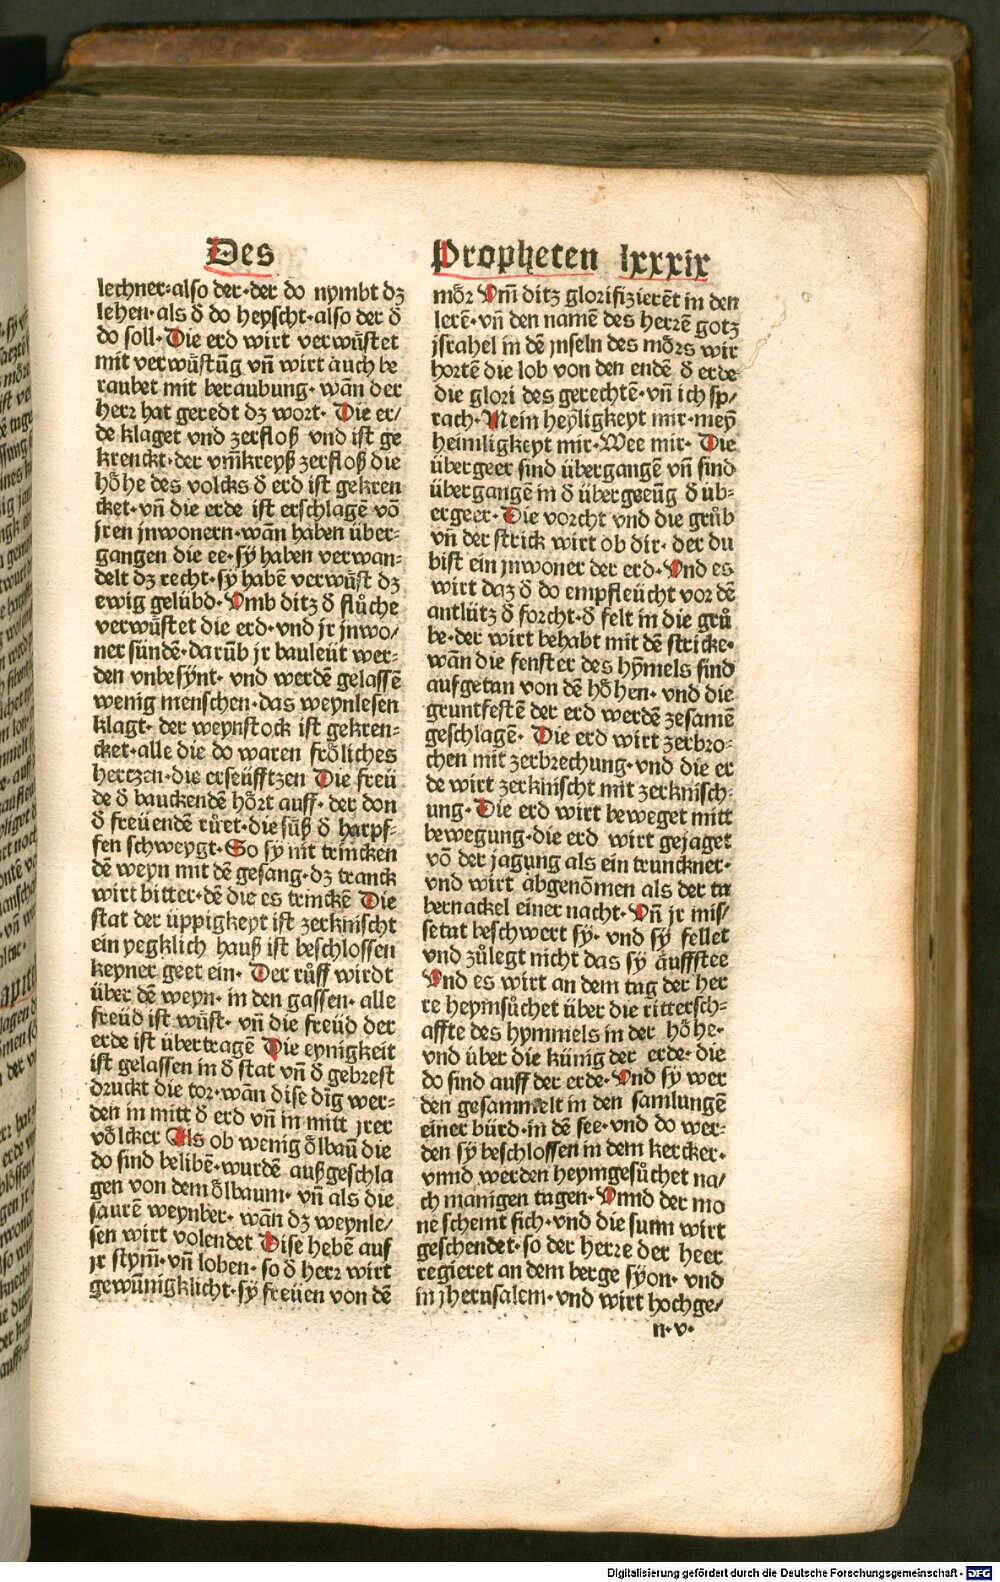 Des
Propheten lxxxix
lechner·also der·der do nymbt dz
lehen·als d̓ do heyscht·also der d̓
do soll·Die erd wirt verwůstet
mit verwůstūg vn̄ wirt auch be
raubet mit beraubung·wān der
herr hat geredt dz wort· Die er/
de klaget vnd zerfloß vnd ist ge
krenckt·der vm̄kreyß zerfloß die
hőhe des volcks d̓ erd ist gekren
cket·vn̄ die erde ist erschlagē vō
jren jnwonern·wān haben über-
gangen die ee·sy̋ haben verwan-
delt dz recht·sy̋ habē verwůst dz
ewig gelübd·Vmb ditz d̓ flůche
verwůstet die erd·vnd jr jnwo/
ner sündē·darūb jr bauleüt wer-
den vnbesy̋nt· vnd werdē gelassē
wenig menschen·das weynlesen
klagt· der weynstock ist gekren-
cket·alle die do waren frőliches
hertzen·die erseüfftzen Die freü
de d̓ bauckendē hőrt auff· der don
d̓ freüendē růet·die sűß d̓ harpf-
fen schweygt·So sy̋ nit trincken
dē weyn mit dē gesang·dz tranck
wirt bitter·dē die es trinckē Die
stat der üppigkeyt ist zerknischt
ein yegklich hauß ist beschlossen
keyner geet ein· Der růff wirdt
über dē weyn· in den gassen· alle
freüd ist wůst· vn̄ die freüd der
erde ist übertragē Die eynigkeit
ist gelassen in d̓ stat vn̄ d̓ gebrest
druckt die tor·wān dise dīg wer-
den in mitt d̓ erd vn̄ in mitt jrer
vőlcker Als ob wenig őlbaū die
do sind belibē·wurdē außgeschla
gen von dem őlbaum· vn̄ als die
saurē weynber· wān dz weynle/
sen wirt volendet Dise hebē auf
jr stym̄·vn̄ loben· so d̓ herr wirt
gewūnigklicht·sy̋ freüen von dē
mőr Vm̄ ditz glorifizierēt in den
lerē·vn̄ den namē des herrē gotz
jsrahel in dē jnseln des mőrs wir
hortē die lob von den endē d̓ erde
die glori des gerechtē·vn̄ ich sp/
rach·Mein hey̋ligkeyt mir·mey̋
heimligkeyt mir·Wee mir· Die
übergeer sind übergangē vn̄ sind
übergangē in d̓ übergeeūg d̓ üb-
ergeer·Die vorcht vnd die grůb
vn̄ der strick wirt ob dir· der du
bist ein jnwoner der erd·Vnd es
wirt daz d̓ do empfleücht vor dē
antlütz d̓ forcht·d̓ felt in die grů
be·der wirt behabt mit dē stricke·
wān die fenster des hy̋mels sind
aufgetan von dē hőhen· vnd die
gruntfestē der erd werdē zesamē
geschlagē· Die erd wirt zerbro-
chen mit zerbrechung·vnd die er
de wirt zerknischt mit zerknisch-
ung·Die erd wirt beweget mitt
bewegung·die erd wirt gejaget
vō der jagung als ein trunckner·
vnd wirt abgenōmen als der ta
bernackel einer nacht·Vn̄ jr mis/
setat beschwert sy̋· vnd sy̋ fellet
vnd zůlegt nicht das sy̋ auffstee
Vnd es wirt an dem tag der her
re heymsůchet über die rittersch-
affte des hymmels in der hőhe·
vnd über die künig der erde· die
do sind auff der erde·Vnd sy̋ wer
den gesammelt in den samlungē
einer bürd·in dē see·vnd do wer-
den sy̋ beschlossen in dem kercker·
vnnd werden heymgesůchet na/
ch manigen tagen·Vnnd der mo
ne schemt sich·vnd die sunn wirt
geschendet·so der herre der heer
regieret an dem berge sy̋on· vnd
in jherusalem·vnd wirt hochge/
n·v·
Digitalisierung gefördert durch die Deutsche Forschungsgemeinschaft - DFG